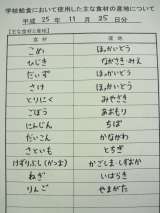 学校給食において使用した主な食材の産地について
平成 25 年 11 月 25 日分
【主な食材と産地】
食材 産地
こめ ほっかいどう
ひじき ながさき・みえ
だいず ほっかいどう
さけ ほっかいどう
とりにく みやざき
ごぼう あおもり
にんじん ちば
だいこん かながわ
さといも とちぎ
けずりぶし(かつお) かごしま・しずおか
ねぎ いばらき
りんご やまがた